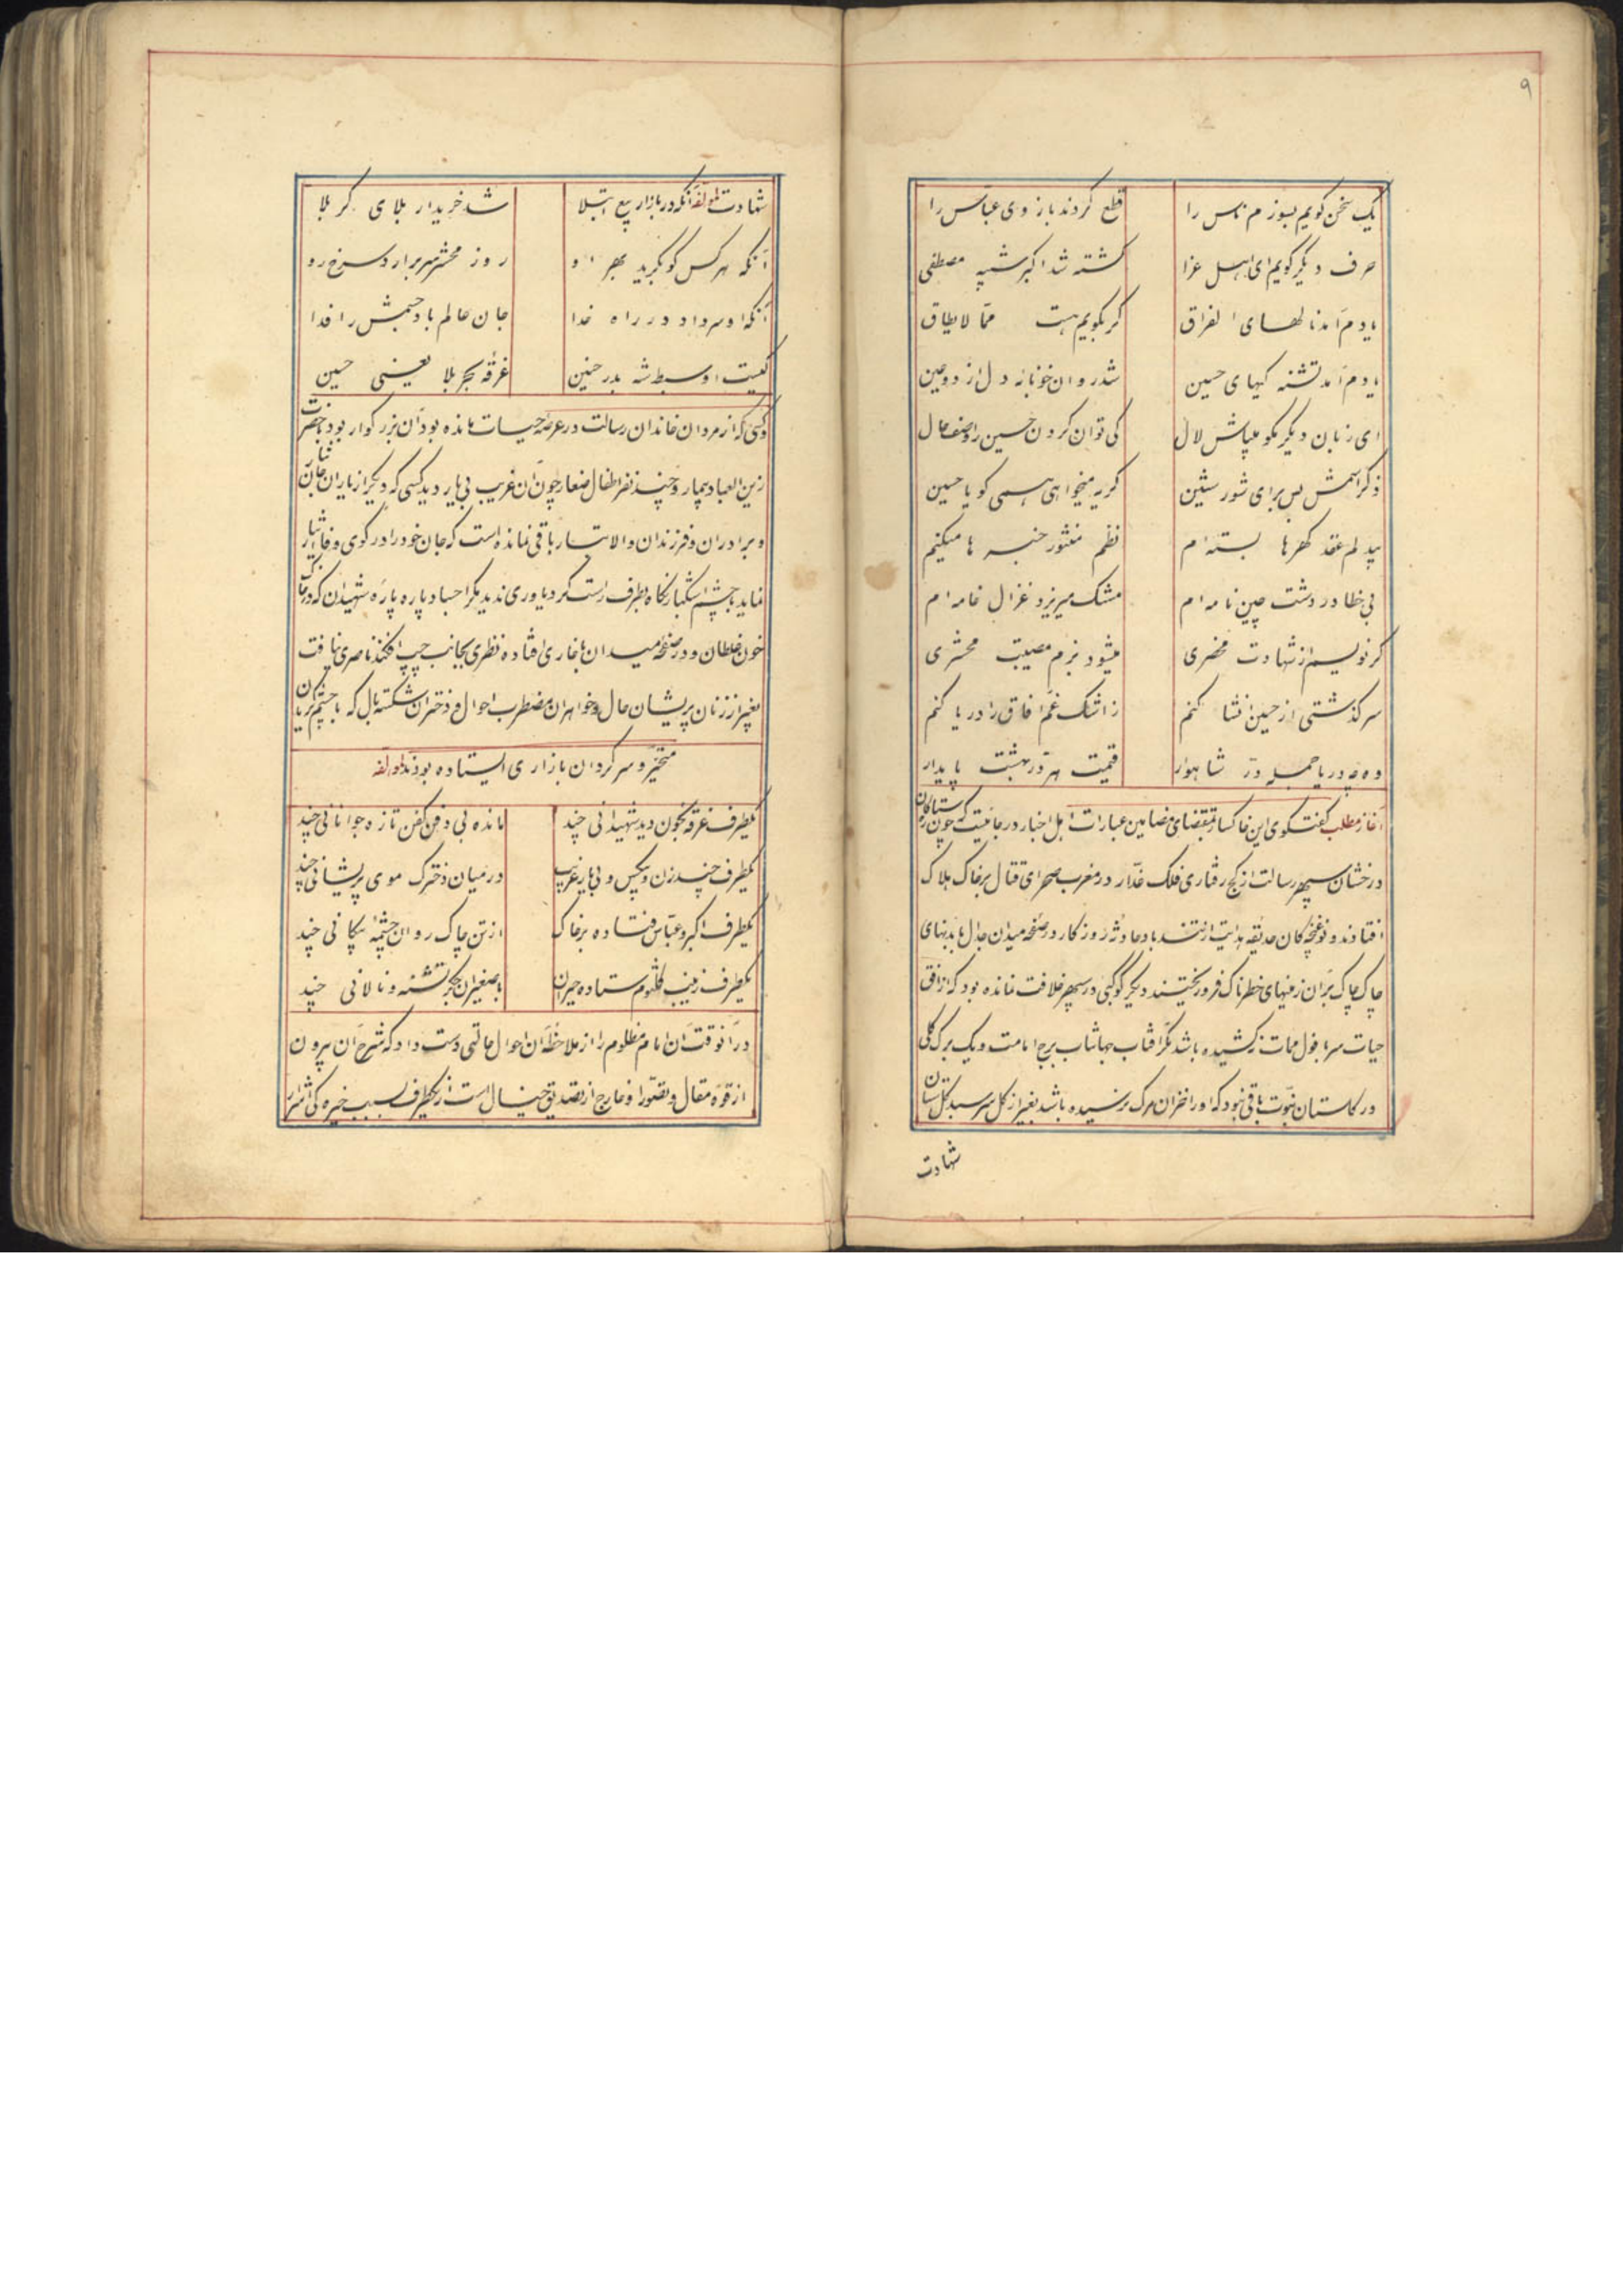 ۹
یک سخن کویم بسوزم ناس را قطع کردند بازوی عباس را
حرف دیکر کویم ای اهل عزا کشته شد اکبر شبیه مصطفی
یادم آمد نالهای الفراق کر بکویم هست ممّا لایطاق
یادم آمد تشنه کیهای حسین شد روان خونابه دل از دو عین
ای زبان دیکر مکو میباش لال کی توان کردن حسین را وصف حال
ذکر اسمش بس برای شور شین کریه میخواهی همی کو یا حسین
عقد کهرها بسته ام نظم منثور خبر ها میکنم
بی خطا در دشت چین نامه ام مشک میریزد غزال خامه ام
کر نویسم از شهادت محضری میشود بزم مصیبت محشری
سرکذشتی از حسین انشا کنم ز اشک غم آفاق را دریا کنم
وه چه دریا جمله درّ شاهوار قیمت هر درّ بهشت پایدار
آغاز مطلب کفتکوی این خاکسار بمقتضای مضامین عبارات اهل اخبار در جائیست که چون ستارکان
درخشان سپهر رسالت از کج رفتاری فلک غدّار در مغرب صحرای قتال بر خاک هلاک
افتادند و نوغنچه کان حدیقه هدایت از تند باد حادثه روزکار در صفحه میدان جدال با بدنهای
چاک چاک بر آن زمینهای خطرناک فرو ریختند دیکر کوکبی در سپهر خلافت نمانده بود که از افق
حیات سر بافول ممات نرکشیده باشد مکر آفتاب جهانتاب برج امامت و یک برک کلی
در کلستان نبوّت باقی نبود که او را خزان مرک نرسیده باشد بغیر از کل سر سبد کلستان
شهادت
شهادت لمؤلفه آنکه در بازار بیع ابتلا شد خریدار بلای کربلا
آنکه هر کس کو بکرید بهر او روز محشر سر برآرد سرخ رو
آنکه او سر داد در راه خدا جان عالم باد جسمش را فدا
کیست او سبط شه بدر حنین غرقه بحر بلا یعنی حسین
و کسی که از مردان خاندان رسالت در عرصه حیات مانده بود آن بزرکوار بود با حضرت
زین العباد بیمار و چند نفر اطفال صغار چون آن غریب بی یار دید کسی که دیکر از یاران جان نثار
و برادران و فرزندان والاتبار باقی نمانده است که جان خود را در کوی وفا نثار
نماید با چشم اشکبار نکاه بطرف راست کرد یاوری ندید مکر اجساد پاره پاره شهیدان که در
خون غلطان و در صفحه میدان با خاری افتاده نظری بجانب چپ افکند ناصری نیافت
بغیر از زنان پریشان حال و خواهران مضطرب احوال و دختران شکسته بال که با چشم کریان
متحیّر و سرکردان بازاری ایستاده بودند لمؤلفه
یکطرف غرقه بخون دید شهیدانی چند مانده بی دفن کفن تازه جوانانی چند
یکطرف چند زن و بیکس و بی یار غریب در میان دخترک موی پریشانی چند
یکطرف اکبر و عباس فتاده بر خاک از تن چاک روان چشمه پیکانی چند
یکطرف زینب کلثوم ستاده حیران با صغیران جکر تشنه و نالانی چند
در آنوقت آن امام مظلوم را از ملاحظه آن احوال حالتی دست داد که شرح آن بیرون
از قوّه مقال و تصوّر او خارج از تصدیق خیال است از یکطرف بسبب خیره کی اشرار